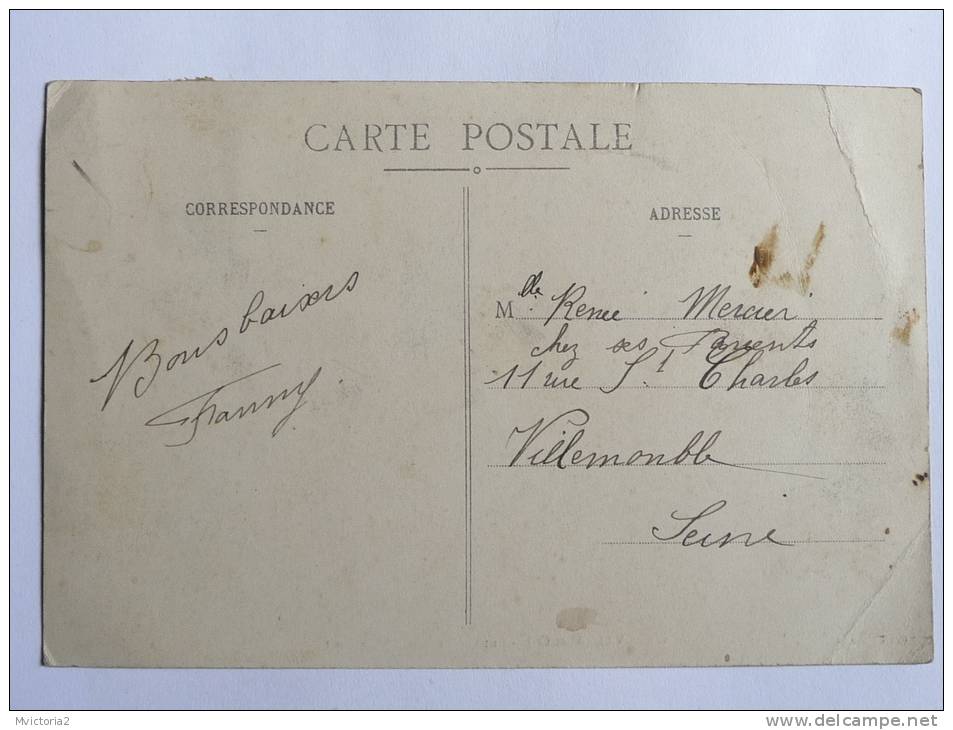 CARTE POSTALE
CORRESPONDANCE
Bons baisers
Fanny
ADRESSE
Mlle Renée Mercier
chez ses Parents
11 rue St Charles
Villemonble
Seine
Mvictoria2
www.delcampe.net